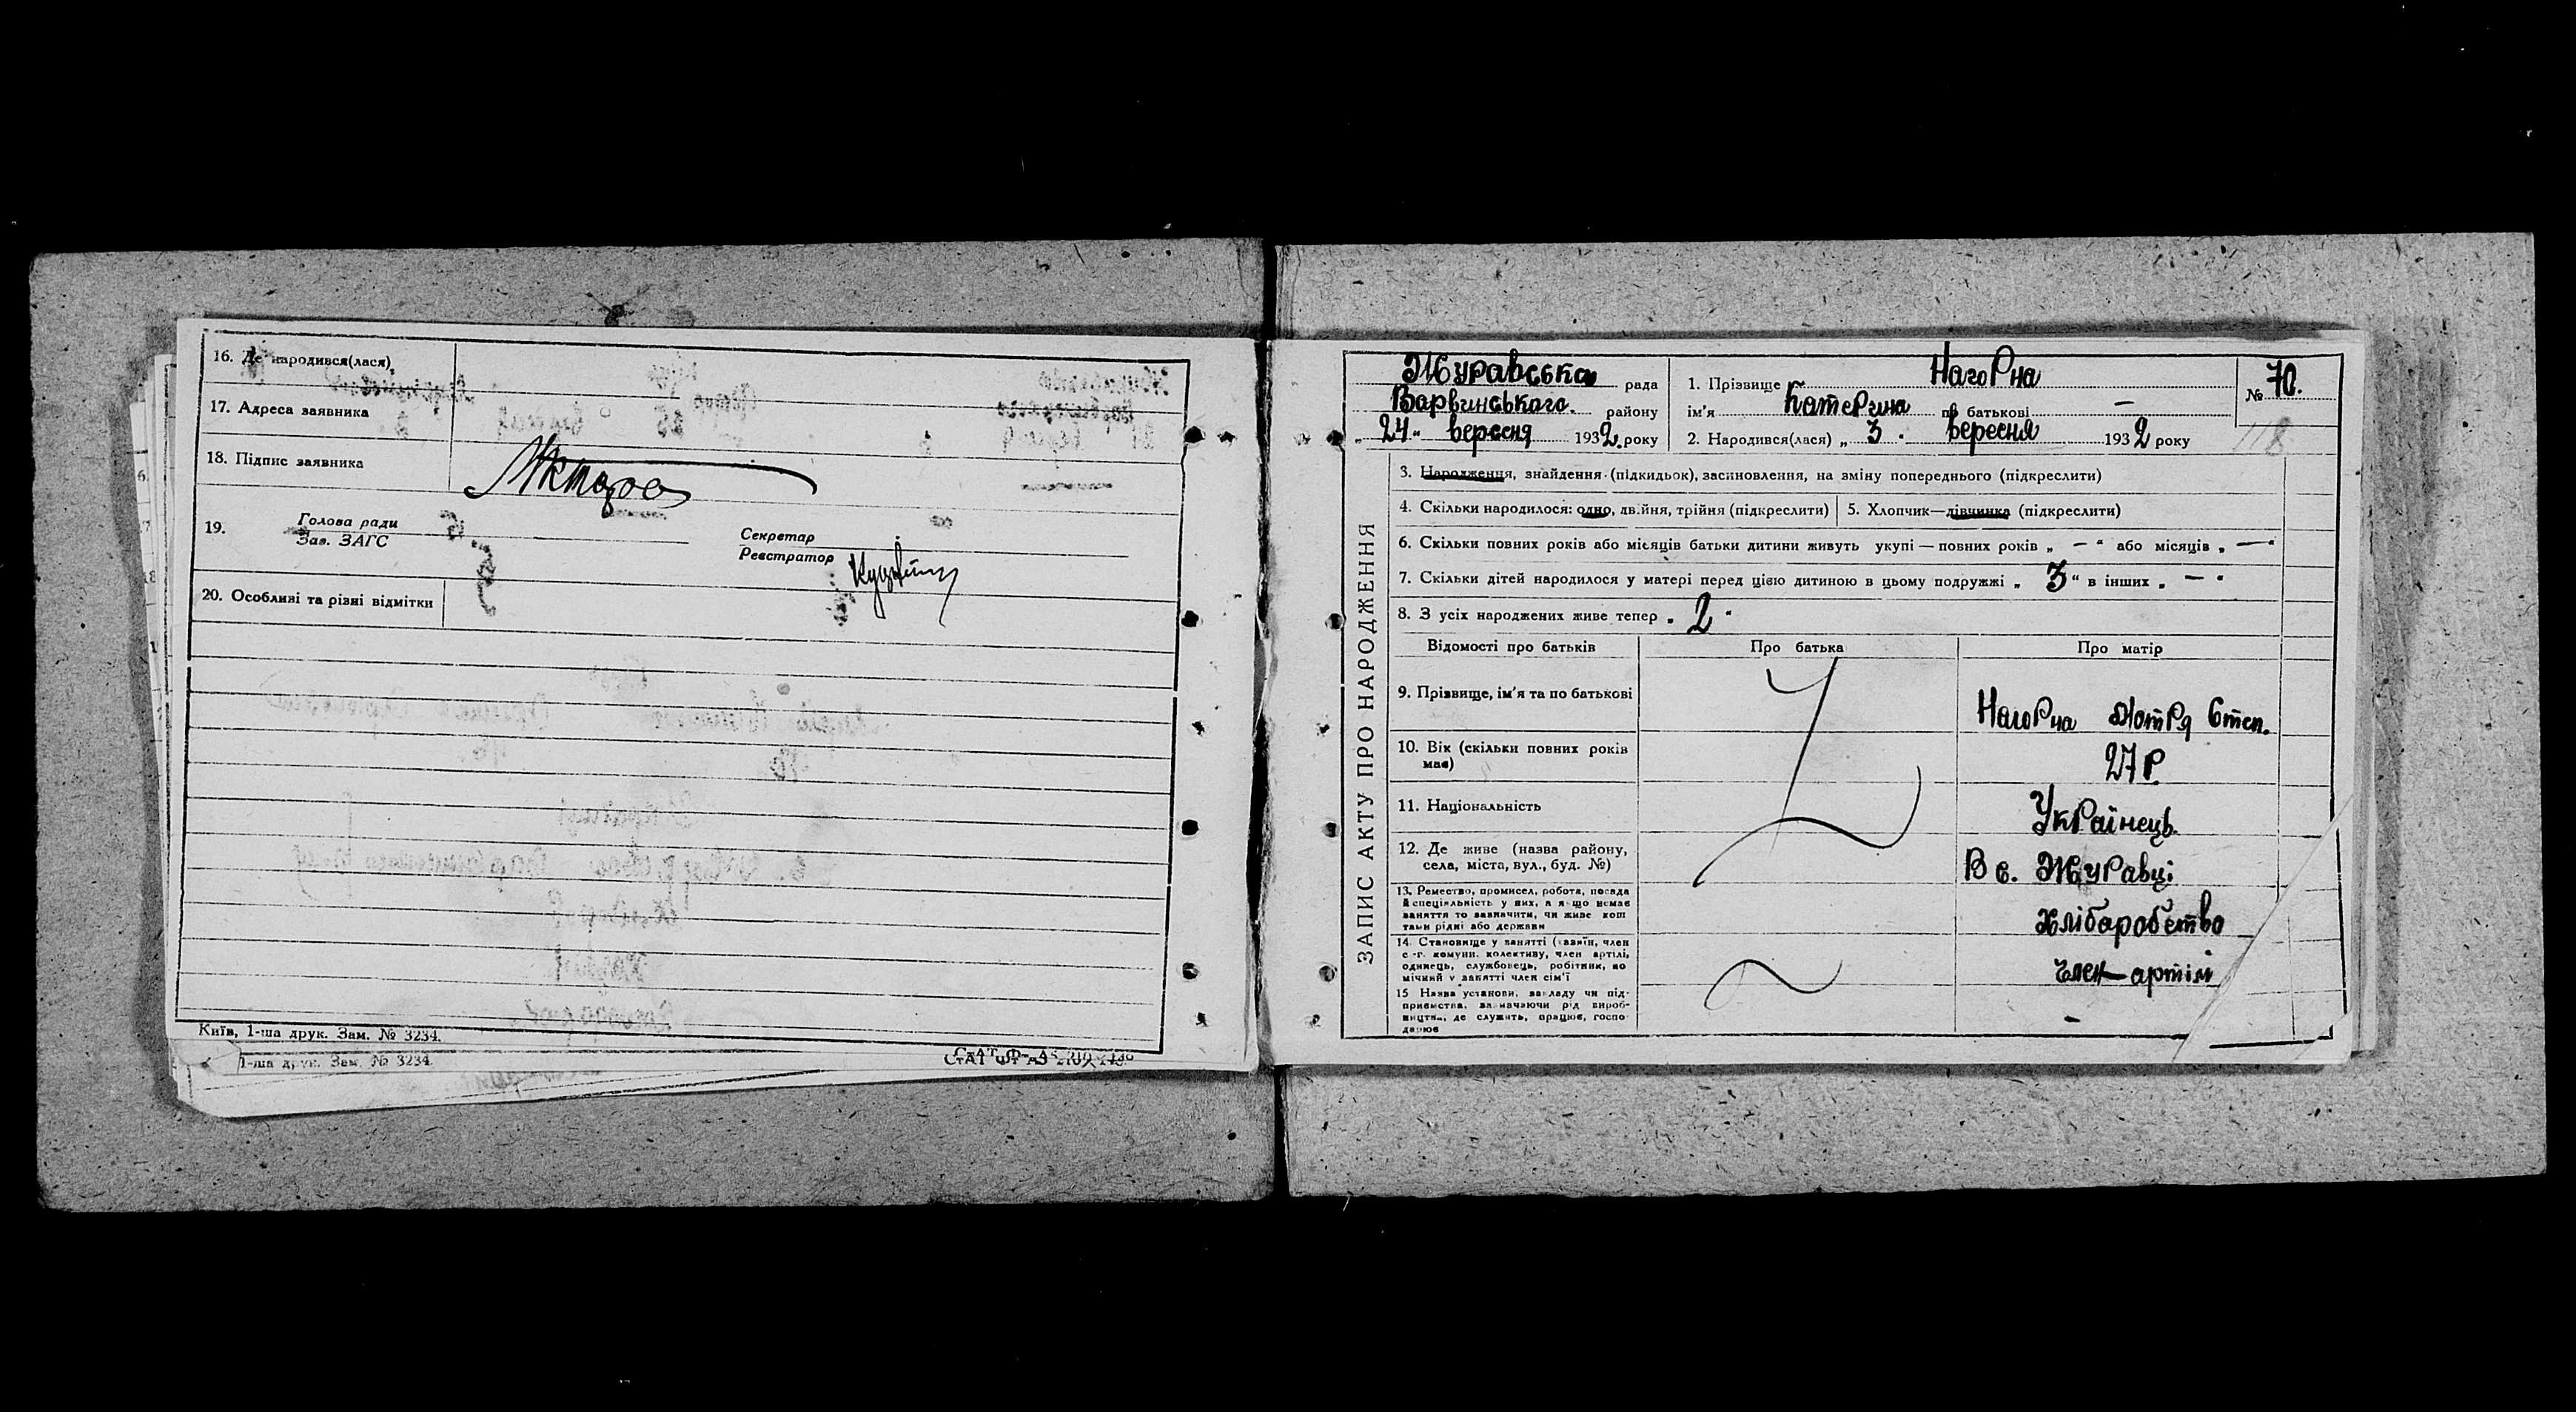 16. Де народився(лася)
17. Адреса заявника
18. Підпис заявника
19. Голова ради
Зав. ЗАГС
Секретар
Реєстратор
20. Особливі та різні відмітки
Київ, 1-ша друк. Зам. № 3234.
1-ша друк. Зам. № 3234.
ЗАПИС АКТУ ПРО НАРОДЖЕННЯ
Журавська рада
Варвинського району
„ 24 " вересня 1932 року
1. Прізвище Нагорна
ім'я Катерина по батькові —
2. Народився(лася) „ 3 " вересня 1932 року
№ 70.
118
3. Народження, знайдення (підкидьок), засиновлення, на зміну попереднього (підкреслити)
4. Скільки народилося: одно, двійня, трійня (підкреслити)
5. Хлопчик—дівчинка (підкреслити)
6. Скільки повних років або місяців батьки дитини живуть укупі — повних років „ — " або місяців „ — "
7. Скільки дітей народилося у матері перед цією дитиною в цьому подружжі „ 3 " в інших „ — "
8. З усіх народжених живе тепер „ 2 "
Відомості про батьків
Про батька
Про матір
9. Прізвище, ім'я та по батькові
Нагорна Мотря Степ.
10. Вік (скільки повних років
має)
27 р.
11. Національність
Українець
12. Де живе (назва району,
села, міста, вул., буд. №)
В с. Журавці
13. Ремество, промисел, робота, посада
й спеціяльність у них, а якщо немає
заняття то зазначити, чи живе кош
тами рідні або держави
Хліборобство
14. Становище у занятті (хазяїн, член
с.-г. комуни, колективу, член артілі,
одинець, службовець, робітник, по
мічний у занятті член сім'ї
член артілі
15 Назва установи, закладу чи під-
приємства, зазначаючи рід вироб-
ництва, де служить, працює, госпо-
дарює
—